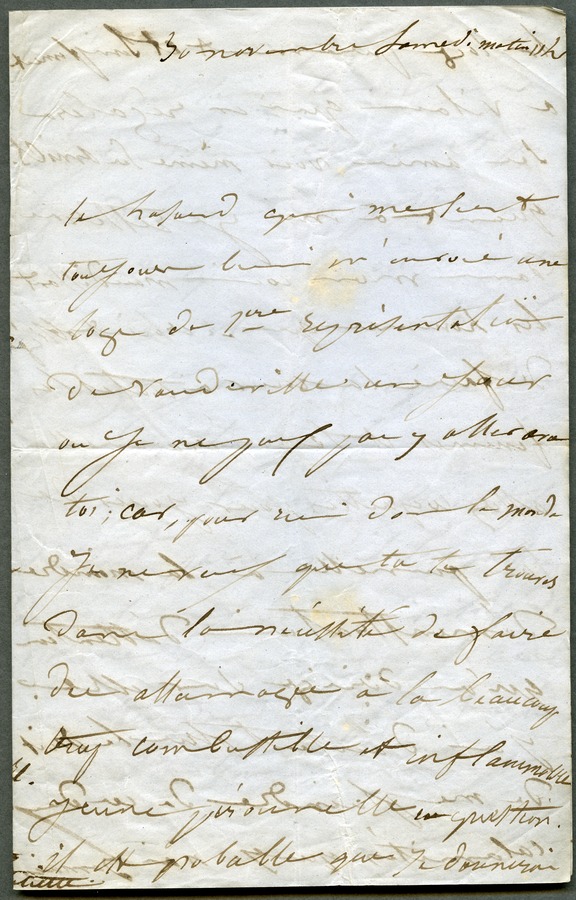 30 novembre Samedi matin 11h
le hasard qui me sert
toujours bien m'envoie une
loge de 1ere représentation
de Vaudeville un jour
ou je ne puis pas y aller avec
toi; car, pour rien dans le monde
Je ne veux que tu te trouves
dans la nécessité de faire
des à la beaucoup
trop combustible et inflammable
jeune péronnelle en question.
il est probable que je donnerai